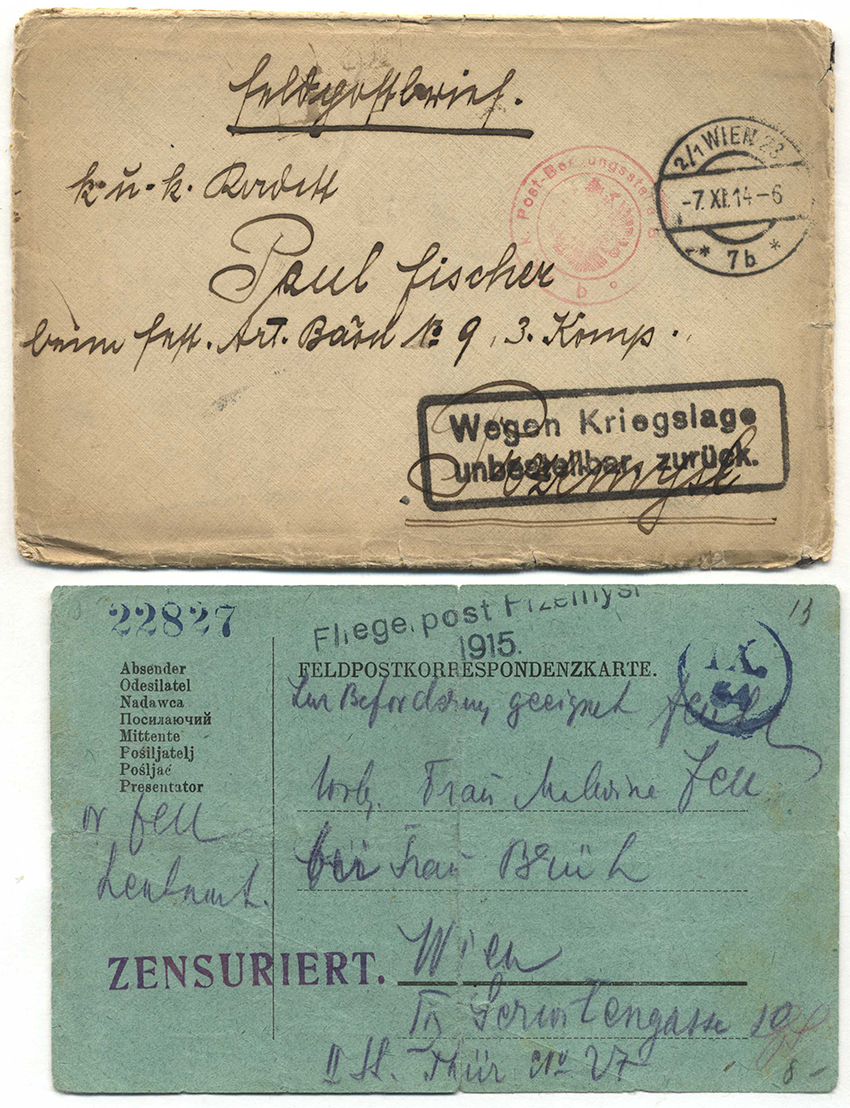 Feldpostbrief.
k. u. k. Kadett
Paul Fischer
beim Fest. Art. Baon No 9, 3. Komp.
Przemyśl
Post-Be
b
2/1 WIEN 23
-7. XI. 14-6
* 7b *
Wegen Kriegslage
unbestellbar, zurück.
22827
Fliegerpost Przemyśl
1915.
13
IX.
54
FELDPOSTKORRESPONDENZKARTE.
Absender
Odesílatel
Nadawca
Посилаючий
Mittente
Pošiljatelj
Pošljač
Presentator
Zur Beförderung geeignet
Frau Malvine Fell
bei Frau Brüll
Wien
IX Servitengasse 19
II St. Thür No 27
Dr Fell
Leutnant.
ZENSURIERT.
8-